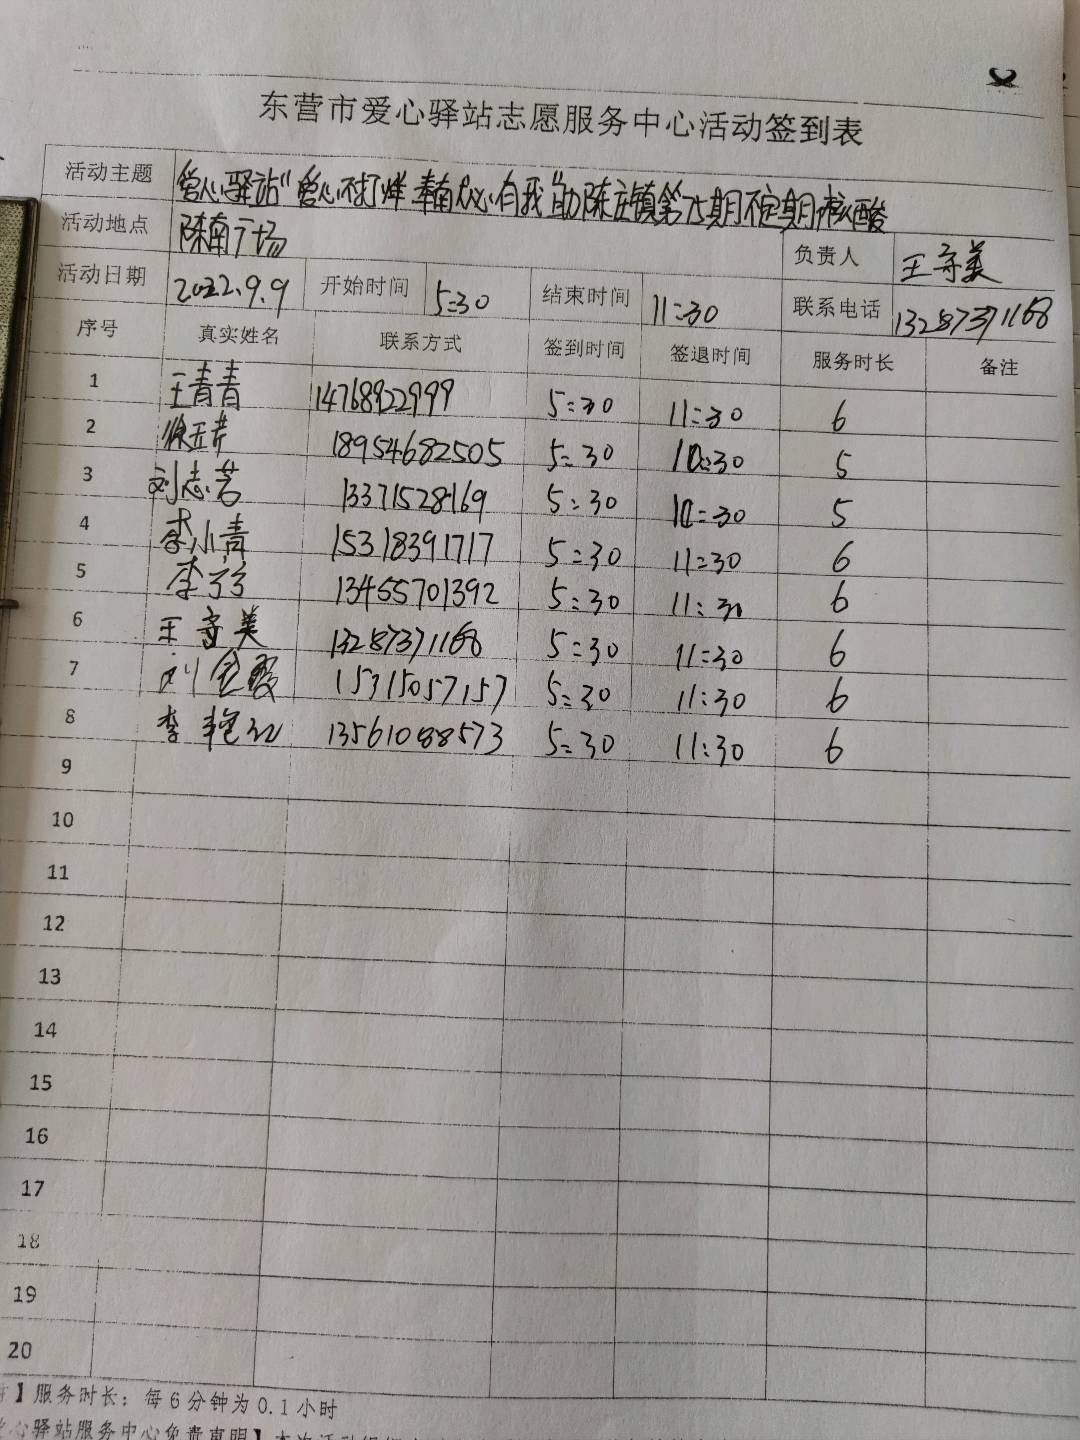 东营市爱心驿站志愿服务中心活动签到表
活动主题 爱心驿站"爱心不打烊 奉献 心有我"助陈庄镇第 期不定期核酸
活动地点 陈南广场 负责人 王守美
活动日期 2022.9.9 开始时间 5:30 结束时间 11:30 联系电话 13287371168
序号 真实姓名 联系方式 签到时间 签退时间 服务时长 备注
1 王青青 14768922999 5:30 11:30 6
2 徐 18954682505 5:30 10:30 5
3 刘志芳 13371528169 5:30 10:30 5
4 李小青 15318391717 5:30 11:30 6
5 李 13455701392 5:30 11:30 6
6 王守美 13287371168 5:30 11:30 6
7 刘 霞 15315057157 5:30 11:30 6
8 李艳红 13561088573 5:30 11:30 6
9
10
11
12
13
14
15
16
17
18
19
20
】服务时长：每6分钟为0.1小时
心驿站服务中心免责声明】本次活动组织